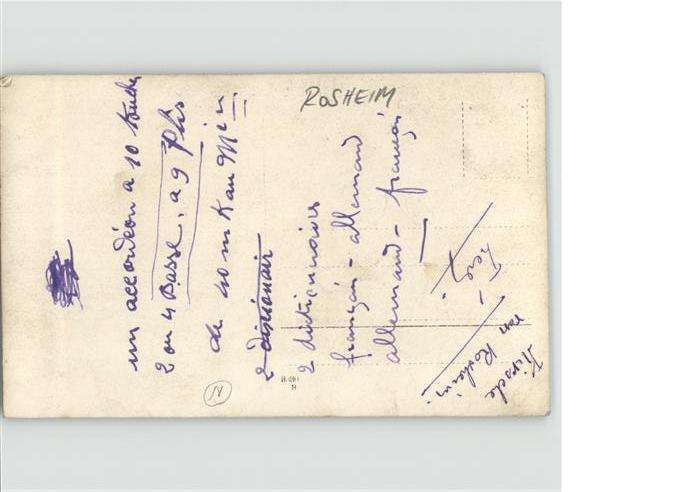 ROSHEIM
un accordéon a 10 touches
2 ou 4 Basse, a 9 Plis
de 40 mK au
2 dixionair
2 dictionnaires
français - allemand
allemand - français
Kirsche
von Rosheim